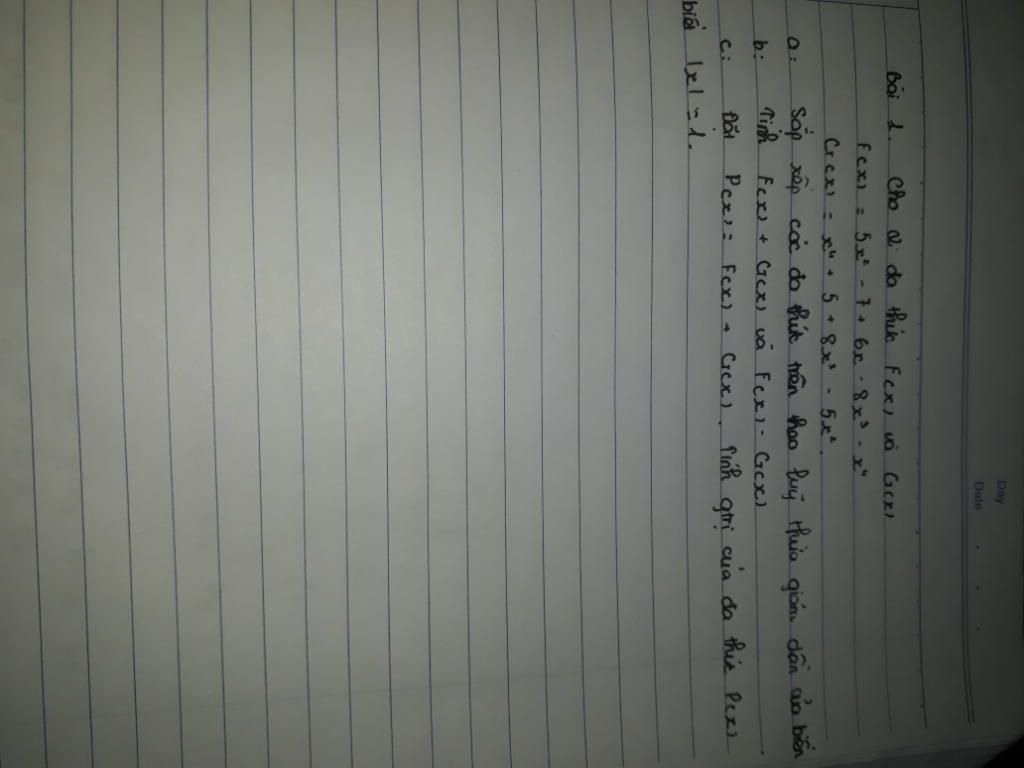 Day
Date . . .
Bài 1. Cho đa thức F(x) và G(x)
F(x) = 5x² - 7 + 6x - 8x³ - x⁴
G(x) = x⁴ + 5 + 8x³ - 5x².
a: Sắp xếp các đa thức trên theo luỹ thừa giảm dần của biến
b: Tính F(x) + G(x) và F(x) - G(x)
c: Đặt P(x) = F(x) + G(x). Tính gtrị của đa thức P(x)
biết |x| = 1.